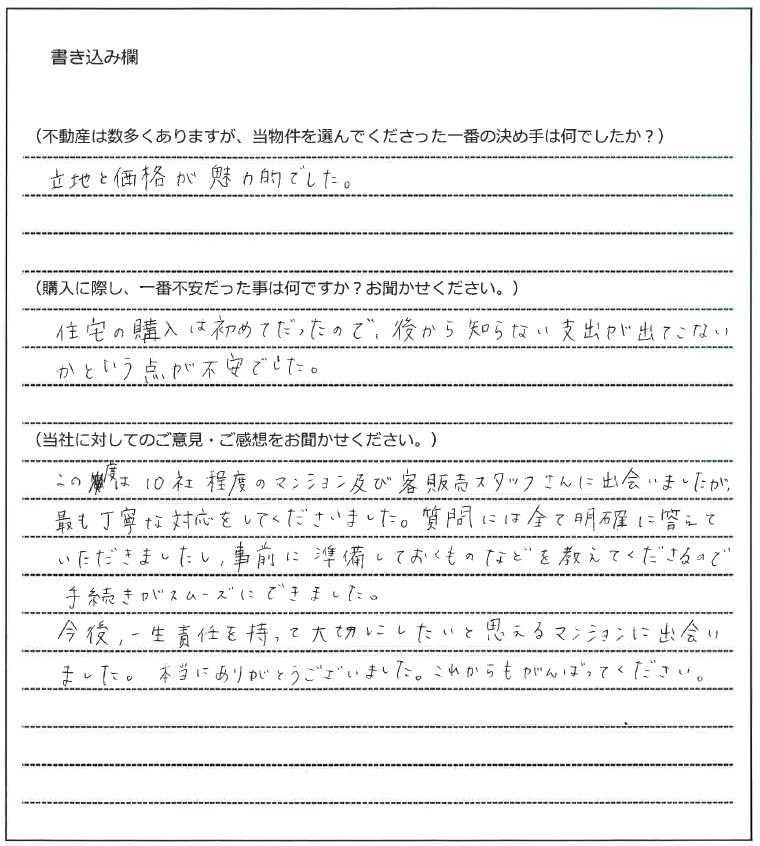 書き込み欄
（不動産は数多くありますが、当物件を選んでくださった一番の決め手は何でしたか？）
立地と価格が魅力的でした。
（購入に際し、一番不安だった事は何ですか？お聞かせください。）
住宅の購入は初めてだったので、後から知らない支出が出てこない
かという点が不安でした。
（当社に対してのご意見・ご感想をお聞かせください。）
この度は10社程度のマンション及び客販売スタッフさんに出会いましたが、
最も丁寧な対応をしてくださいました。質問には全て明確に答えて
いただきましたし、事前に準備しておくものなどを教えてくださるので
手続きがスムーズにできました。
今後、一生責任を持って大切にしたいと思えるマンションに出会い
ました。本当にありがとうございました。これからもがんばってください。